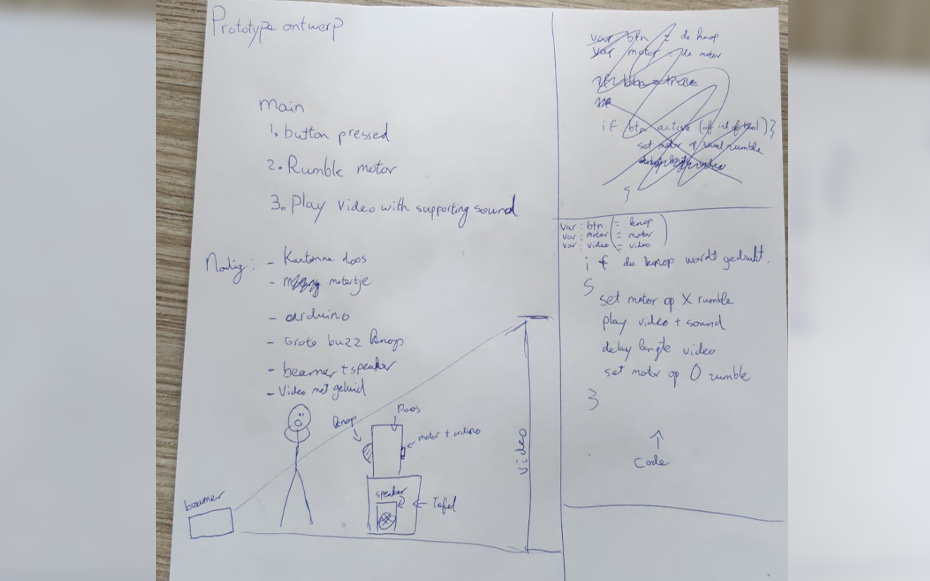 Prototype ontwerp
Main
1. button pressed
2. Rumble motor
3. Play video with supporting sound
Nodig:
- Kartonne doos
- motortje
- arduino
- Grote buzz knop
- beamer + speaker
- Video met geluid
knop
Doos
motor + arduino
speaker
Tafel
beamer
video
var btn = de knop
var motor de motor
if btn active
set motor op rumble
}
var: btn = knop
var: motor = motor
var: video = video
if de knop wordt gedrukt.
{
set motor op X rumble
play video + sound
delay lengte video
set motor op 0 rumble
}
Code